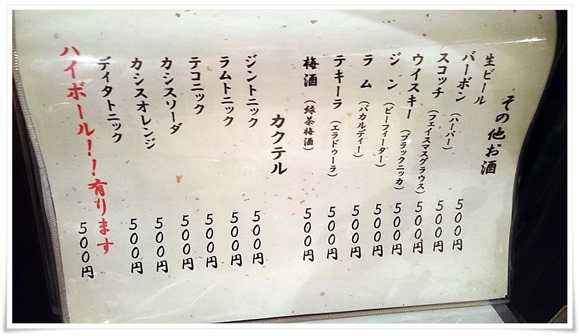 その他お酒
生ビール 500円
バーボン（ハーパー） 500円
スコッチ（フェイスマスグラウス） 500円
ウイスキー（ブラックニッカ） 500円
ジン（ビーフィーター） 500円
ラム（バカルディー） 500円
テキーラ（エラドゥーラ） 500円
梅酒（緑茶梅酒） 500円
カクテル
ジントニック 500円
ラムトニック 500円
テコニック 500円
カシスソーダ 500円
カシスオレンジ 500円
ディタトニック 500円
ハイボール！！有ります 500円